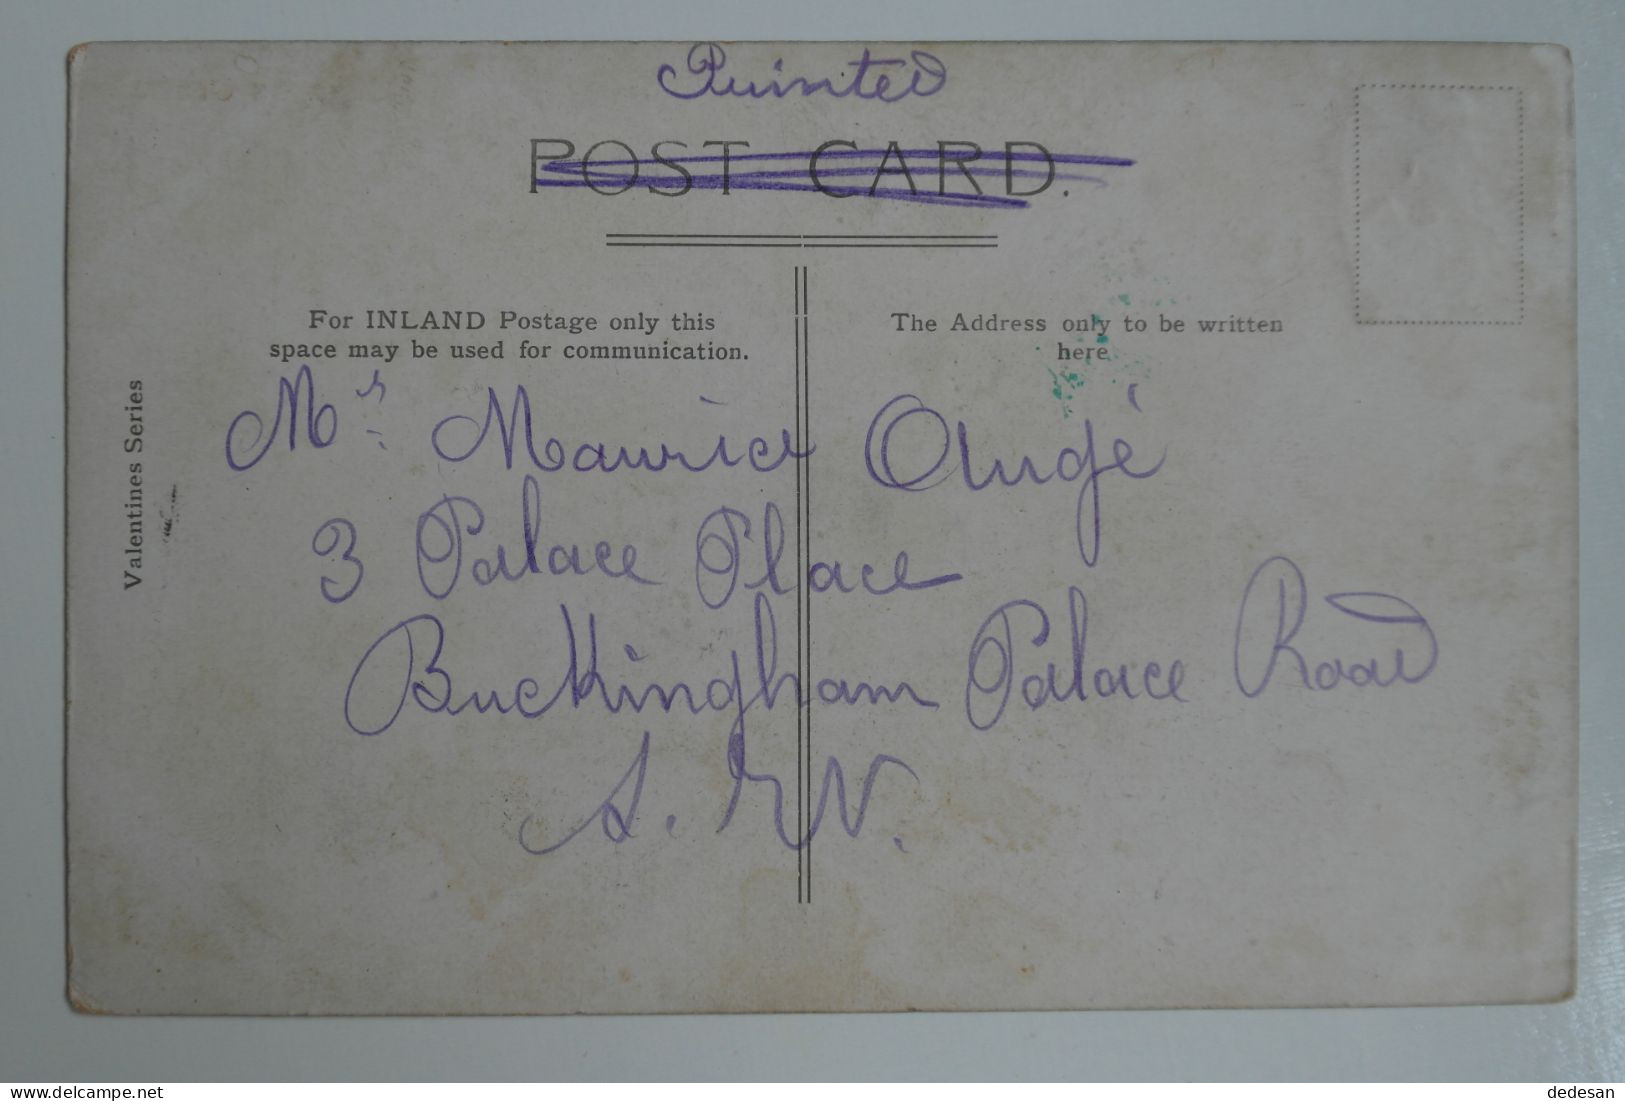 Printed
POST CARD.
For INLAND Postage only this
space may be used for communication.
The Address only to be written
here
Valentines Series
Mr. Maurice Augé
3 Palace Place
Buckingham Palace Road
S. W.
www.delcampe.net
dedesan